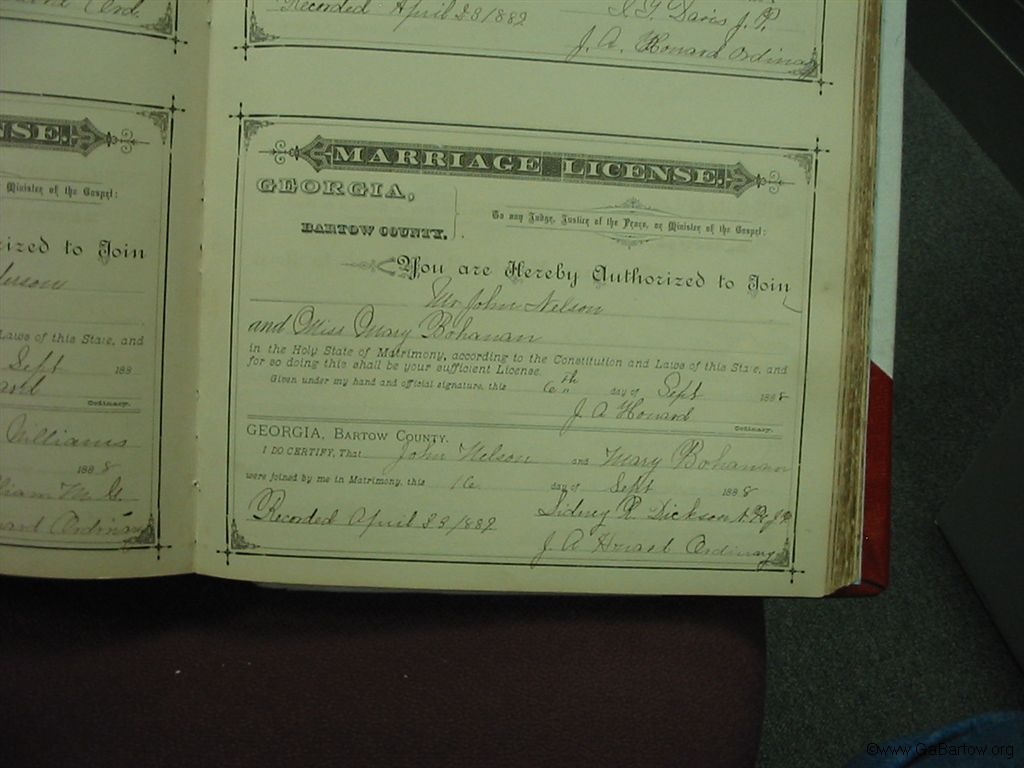 Ord.
Recorded April 23/882
J. A. Howard Ordinary
NSE.
Minister of the Gospel:
rized to Join
Laws of this State, and
Sept 188
Ordinary.
Williams
1888
liam M. G.
ward Ordinary
MARRIAGE LICENSE.
GEORGIA,
BARTOW COUNTY.
To any Judge, Justice of the Peace, or Minister of the Gospel:
You are Hereby Authorized to Join
Mr John Nelson
and Miss Mary Bohanan
in the Holy State of Matrimony, according to the Constitution and Laws of this State, and
for so doing this shall be your sufficient License.
Given under my hand and official signature, this 6th day of Sept 1888
J A Howard
Ordinary.
GEORGIA, BARTOW COUNTY.
I DO CERTIFY, That John Nelson and Mary Bohanan
were joined by me in Matrimony, this 16 day of Sept 1888
Sidney R. Dickson
Recorded April 23/882
J. A Howard Ordinary
©www.GaBartow.org